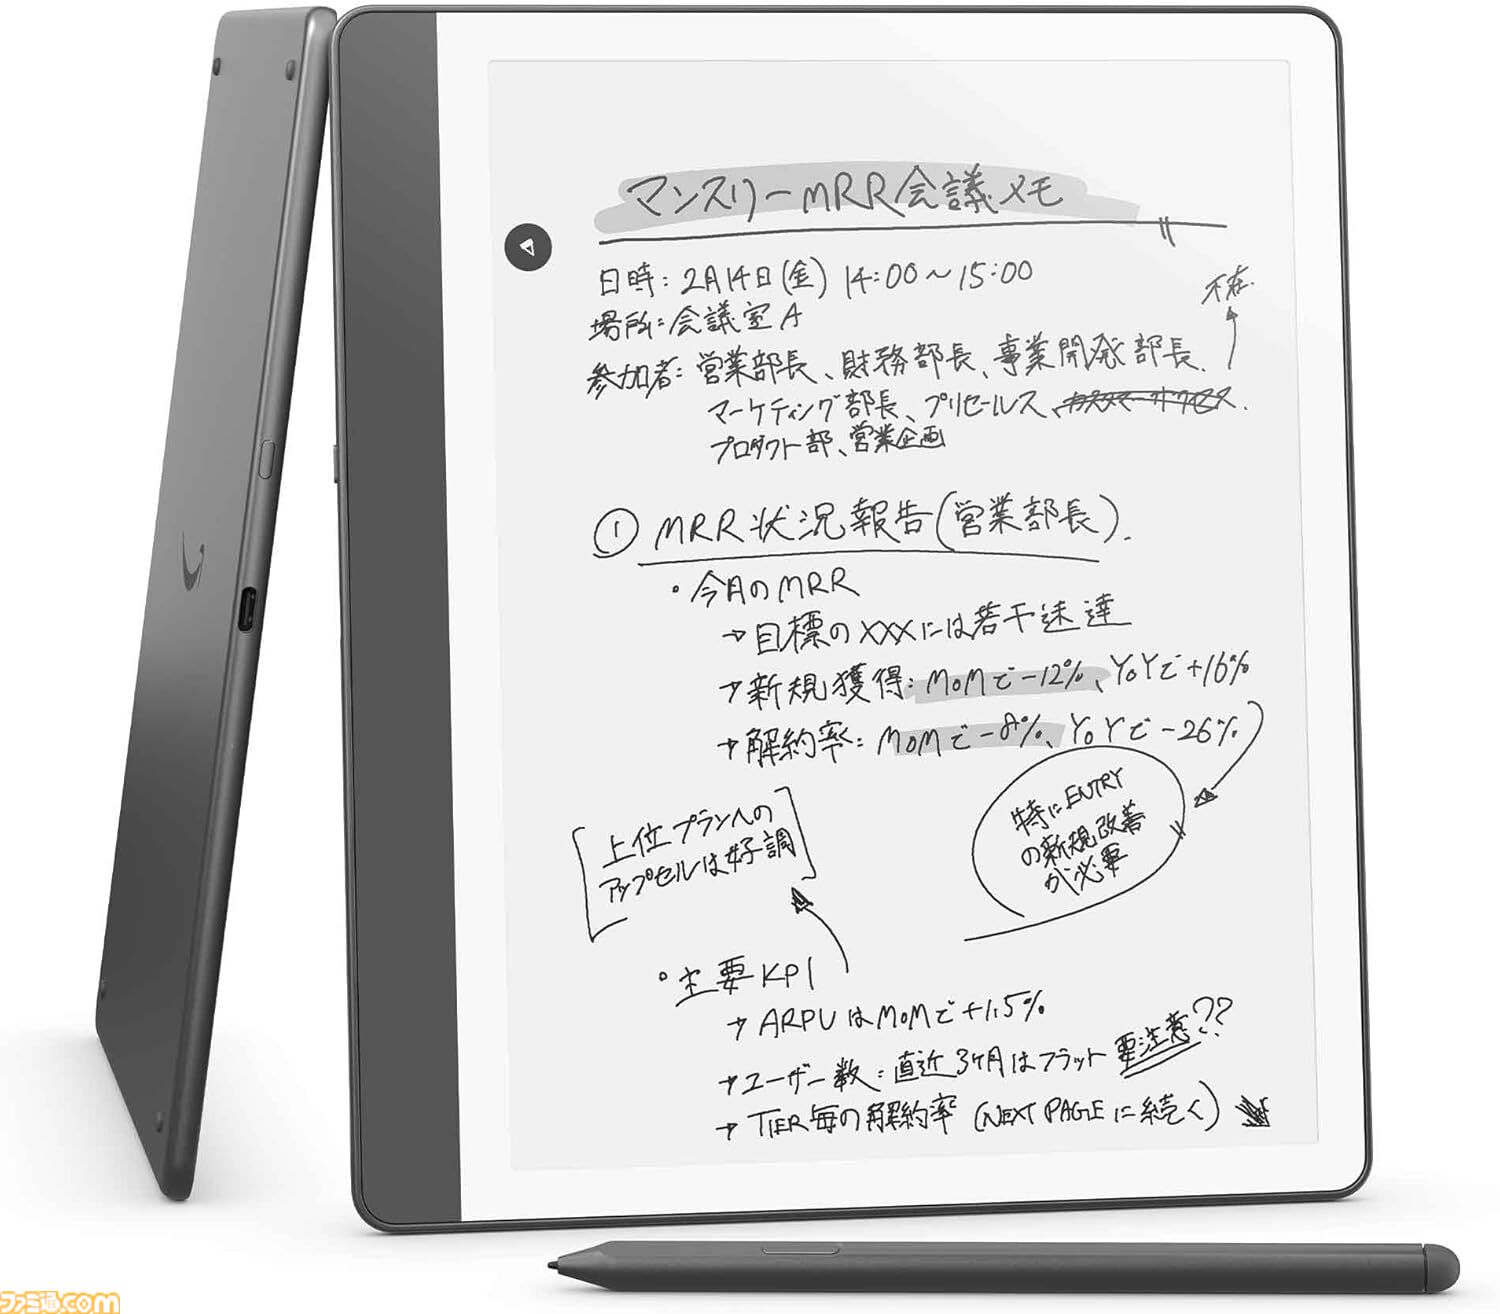 マンスリーMRR会議メモ
日時：2月14日(金) 14:00〜15:00
不在.
場所：会議室A
参加者：営業部長、財務部長、事業開発部長、
マーケティング部長、プリセールス、カスタマーサクセス.
プロダクト部、営業企画
① MRR状況報告(営業部長).
・今月のMRR
→目標のXXXには若干未達
→新規獲得：MoMで-12%、YoYで+16%
→解約率：MoMで-8%、YoYで-26%
特にENTRY
の新規改善
が必要
上位プランへの
アップセルは好調
・主要KPI
→ARPUはMoMで+1.5%
→ユーザー数：直近3ケ月はフラット 要注意??
→TIER毎の解約率(NEXT PAGEに続く)
ファミ通.com